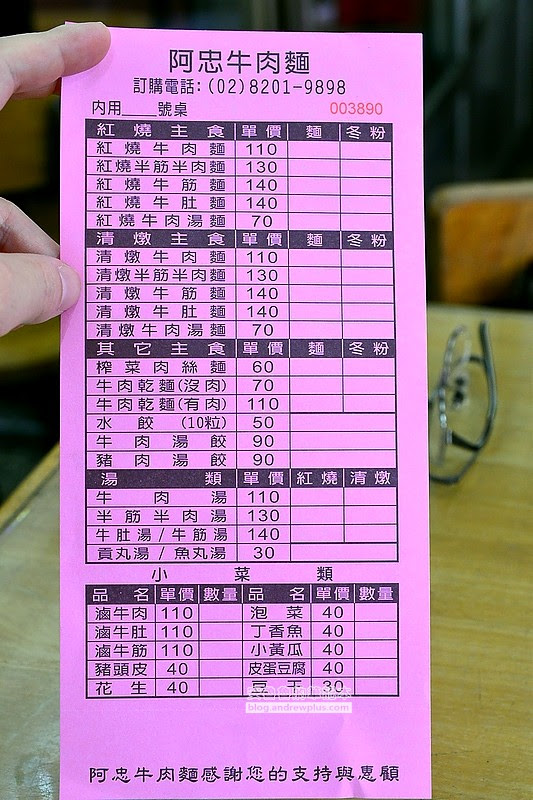 阿忠牛肉麵
訂購電話:(02)8201-9898
內用____號桌 003890
紅燒主食 單價 麵 冬粉
紅燒牛肉麵 110
紅燒半筋半肉麵 130
紅燒牛筋麵 140
紅燒牛肚麵 140
紅燒牛肉湯麵 70
清燉主食 單價 麵 冬粉
清燉牛肉麵 110
清燉半筋半肉麵 130
清燉牛筋麵 140
清燉牛肚麵 140
清燉牛肉湯麵 70
其它主食 單價 麵 冬粉
榨菜肉絲麵 60
牛肉乾麵(沒肉) 70
牛肉乾麵(有肉) 110
水餃 (10粒) 50
牛肉湯餃 90
豬肉湯餃 90
湯類 單價 紅燒 清燉
牛肉湯 110
半筋半肉湯 130
牛肚湯/牛筋湯 140
貢丸湯/魚丸湯 30
小菜類
品名 單價 數量 品名 單價 數量
滷牛肉 110 泡菜 40
滷牛肚 110 丁香魚 40
滷牛筋 110 小黃瓜 40
豬頭皮 40 皮蛋豆腐 40
花生 40 豆干 30
blog.andrewplus.com
阿忠牛肉麵感謝您的支持與惠顧